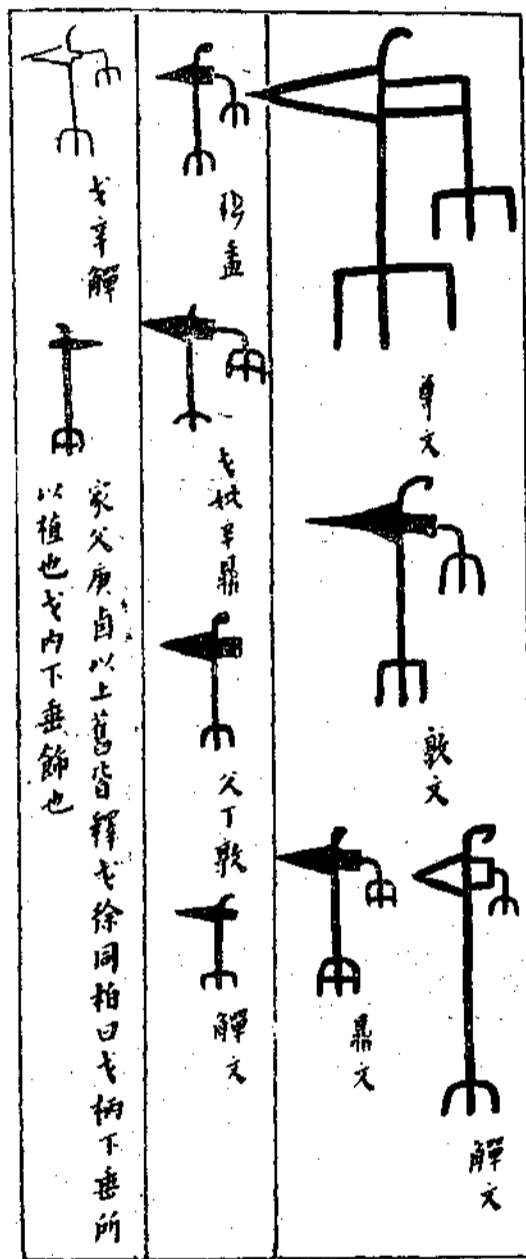 尊文
敦文
觶文
鼎文
盉
戈
辛鼎
父丁敦
觶文
戈辛觶
家父庚卣以上舊皆釋戈徐同柏曰戈柄下垂所
以植也戈內下垂飾也